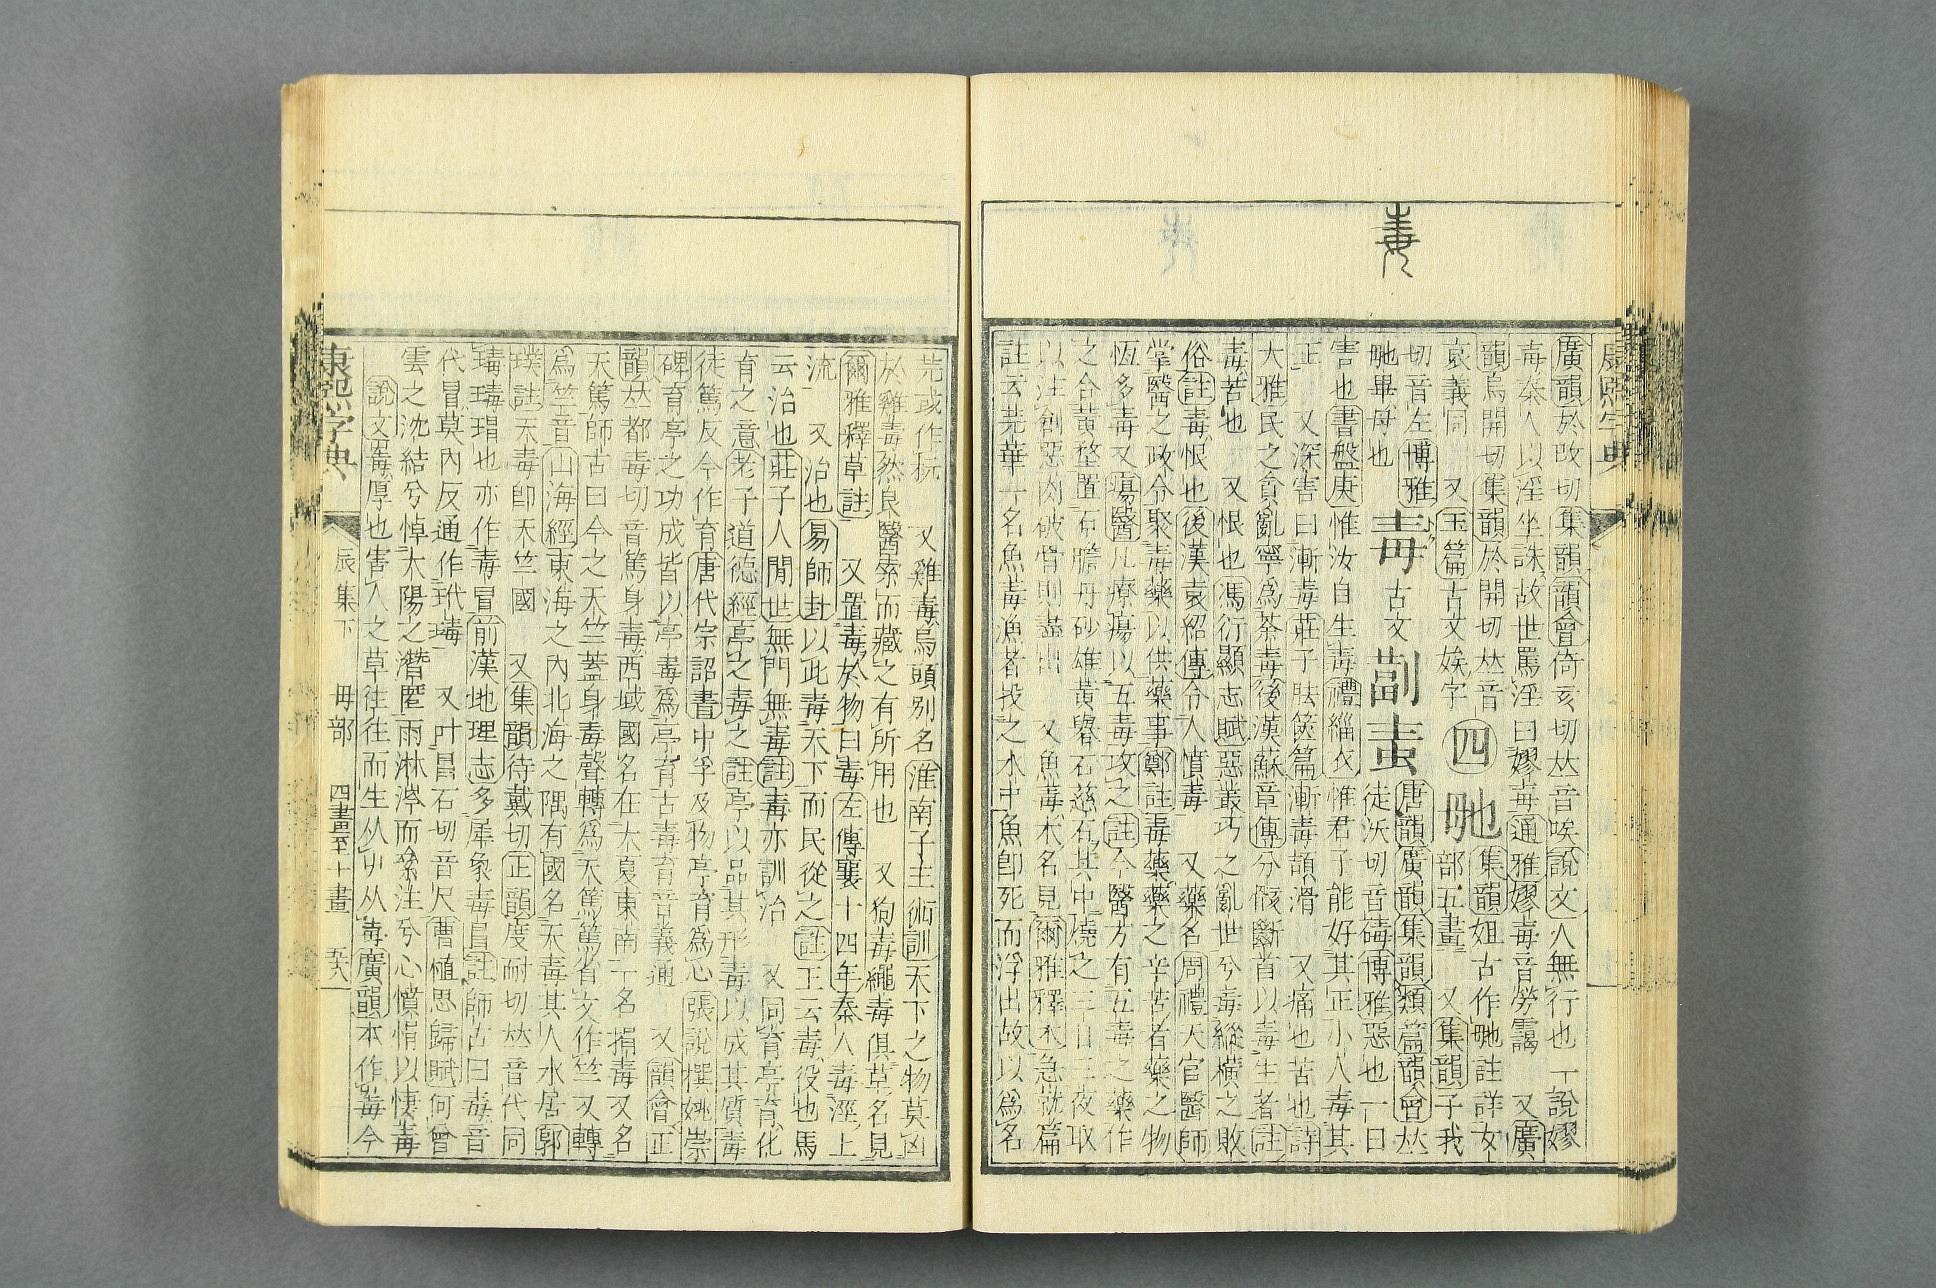 毒
康熙字典
廣韻於改切集韻韻會倚亥切𠀤音唉說文人無行也一說嫪
毐秦人以淫坐誅故世罵淫曰嫪毐通雅嫪毐音勞靄 又廣
韻烏開切集韻於開切𠀤音
哀義同 又玉篇古文娭字
四
毑
集韻姐古作毑註詳女
部五畫 又集韻子我
切音左博雅
毑母也
毒
古文
唐韻廣韻集韻類篇韻會𠀤
徒沃切音碡博雅惡也一曰
害也書盤庚惟汝自生毒禮緇衣惟君子能好其正小人毒其
正 又深害曰漸毒莊子胠篋篇漸毒頡滑 又痛也苦也詩
大雅民之貪亂寧爲荼毒後漢蘇章傳分骸斷首以毒生者註
毒苦也 又恨也馮衍顯志賦惡叢巧之亂世兮毒縱橫之敗
俗註毒恨也後漢袁紹傳令人憤毒 又藥名周禮天官醫師
掌醫之政令聚毒藥以供藥事鄭註毒藥藥之辛苦者藥之物
恆多毒又瘍醫凡療瘍以五毒攻之註今醫方有五毒之藥作
之合黃堥置石膽丹砂雄黃礜石慈石其中燒之三日三夜取
以注創惡肉破骨則盡出 又魚毒木名見爾雅釋木急就篇
註云芫華一名魚毒漁者投之水中魚卽死而浮出故以爲名
芫或作杬 又雞毒烏頭別名淮南子主術訓天下之物莫凶
於雞毒然良醫索而藏之有所用也 又狗毒繩毒俱草名見
爾雅釋草註 又置毒於物曰毒左傳襄十四年秦人毒涇上
流 又治也易師卦以此毒天下而民從之註王云毒役也馬
云治也莊子人閒世無門無毒註毒亦訓治 又同育亭育化
育之意老子道德經亭之毒之註亭以品其形毒以成其質毒
徒篤反今作育唐代宗詔書中孚及物亭育爲心張說撰姚崇
碑育亭之功成皆以亭毒爲亭育古毒育音義通 又韻會正
韻𠀤都毒切音篤身毒西域國名在大夏東南一名捐毒又名
天篤師古曰今之天竺蓋身毒聲轉爲天篤篤省文作竺又轉
爲竺音山海經東海之內北海之隅有國名天毒其人水居郭
璞註天毒卽天竺國 又集韻待戴切正韻度耐切𠀤音代同
瑇瑇瑁也亦作毒冒前漢地理志多犀象毒冒註師古曰毒音
代冒莫內反通作玳瑇 又叶昌石切音尺曹植思歸賦何曾
雲之沈結兮悼太陽之潛匿雨淋涔而累注兮心憤悁以悽毒
說文毒厚也害人之草往往而生从屮从毐廣韻本作毒今
康熙字典 辰集下 毋部 四畫至十畫